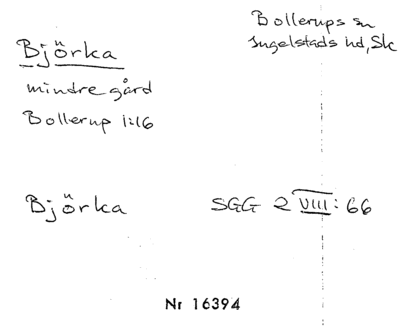 Björka
Bollerups sn
Ingelstads hd, Sk
mindre gård
Bollerup 1:16
Björka
SGG 2 VIII: 66
Nr 16394